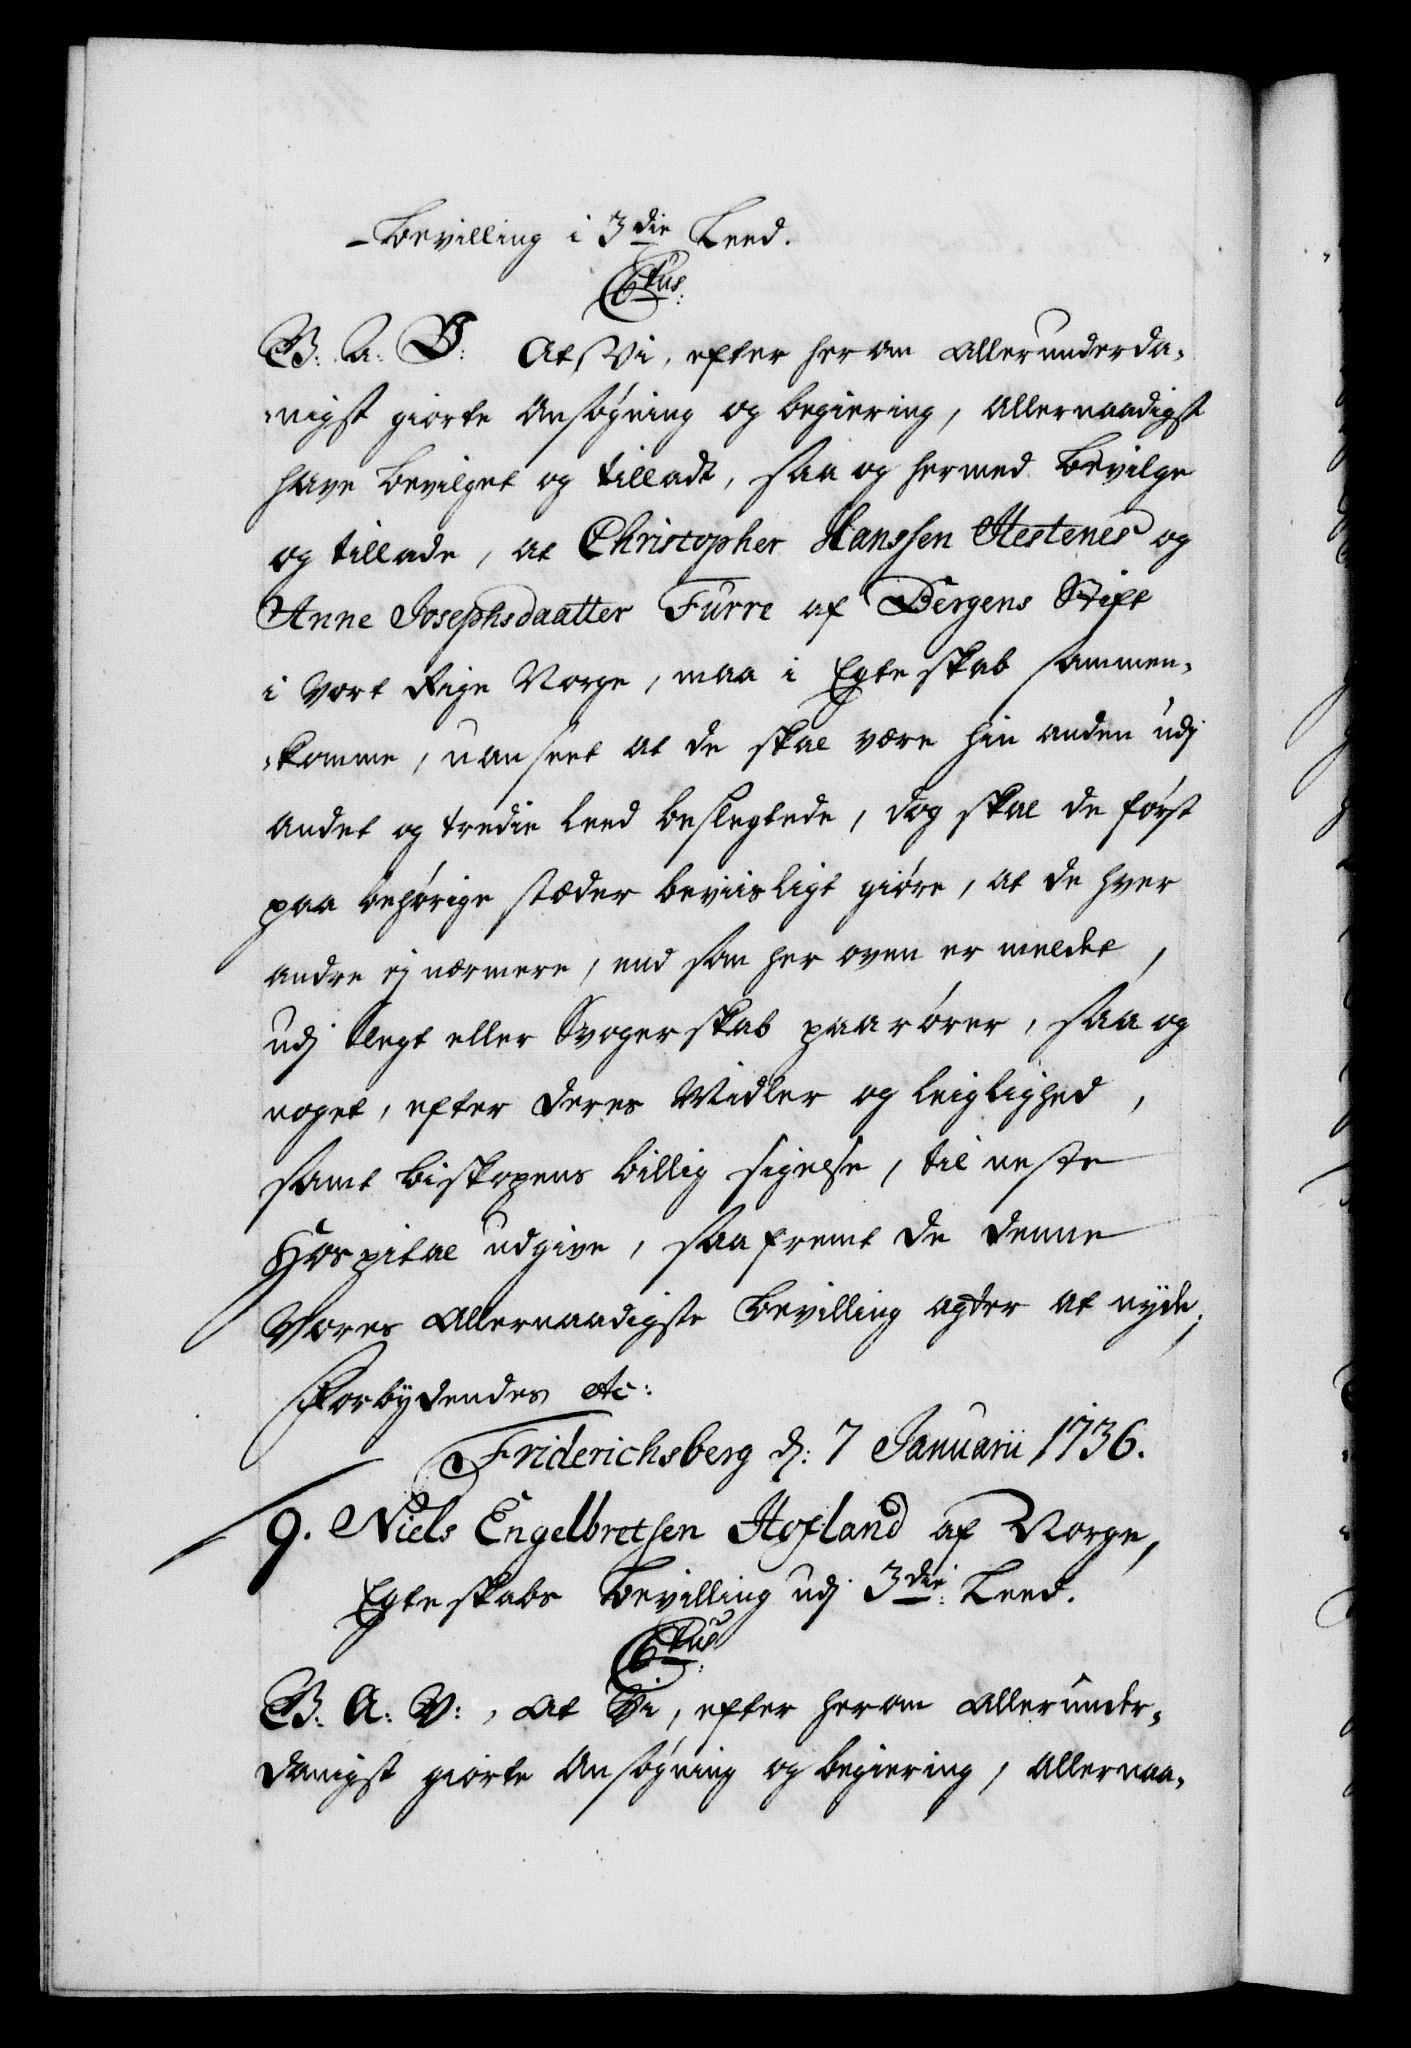 -Bevilling i 3die Leed.
Ctus:
B: A: V: At Vi, efter herom allerunderda-
-nigst giorte Ansøgning og begiering, allernaadigst
have bevilget og tilladt, saa og hermed bevilge
og tillade, at Christopher Hanssen Hestenes og
Anne Josephsdaatter Furre af Bergens Stift
i Vort Rige Norge, maa i Egteskab sammen-
-komme, uanseet at de skal være hin anden udj
andet og tredie leed beslegtede, dog skal de først
paa behørige stæder beviisligt giøre, at de hver
andre ej nærmere, end som her oven er meldet,
udj Slegt eller Svogerskab paarører, saa og
noget, efter deres Midler og leiglighed,
samt biskopens billig sigelse, til neste
Hospital udgive, saafremt de denne
Vores allernaadigste bevilling agter at nyde;
Forbydendes etc:
Friderichsberg d: 7 Januarii 1736.
9. Niels Engelbretsen Hofland af Norge,
Egteskabs bevilling udj 3die: Leed.
Ctus:
B: A: V:, at Vi, efter herom allerunder-
danigst giorte Ansøgning og begiering, allernaa-